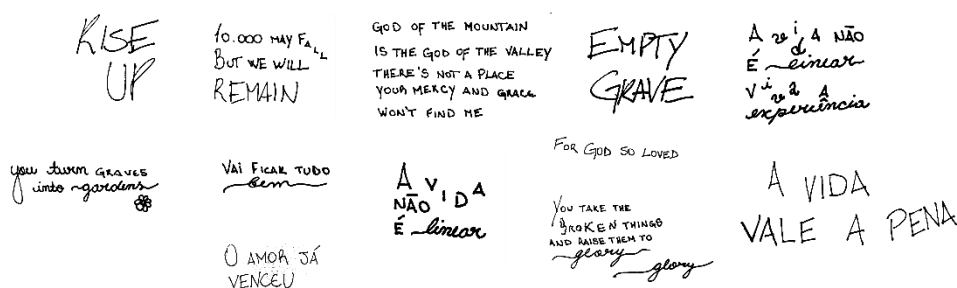 RISE
UP
10.000 MAY FALL
BUT WE WILL
REMAIN
GOD OF THE MOUNTAIN
IS THE GOD OF THE VALLEY
THERE'S NOT A PLACE
YOUR MERCY AND GRACE
WON'T FIND ME
EMPTY
GRAVE
A vida NÃO
É linear
Viva A
experiência
you turn GRAVES
into gardens
VAI FICAR TUDO
bem
A VIDA
NÃO
É linear
FOR GOD SO LOVED
YOU TAKE THE
BROKEN THINGS
AND RAISE THEM TO
glory
glory
A VIDA
VALE A PENA
O AMOR JÁ
VENCEU